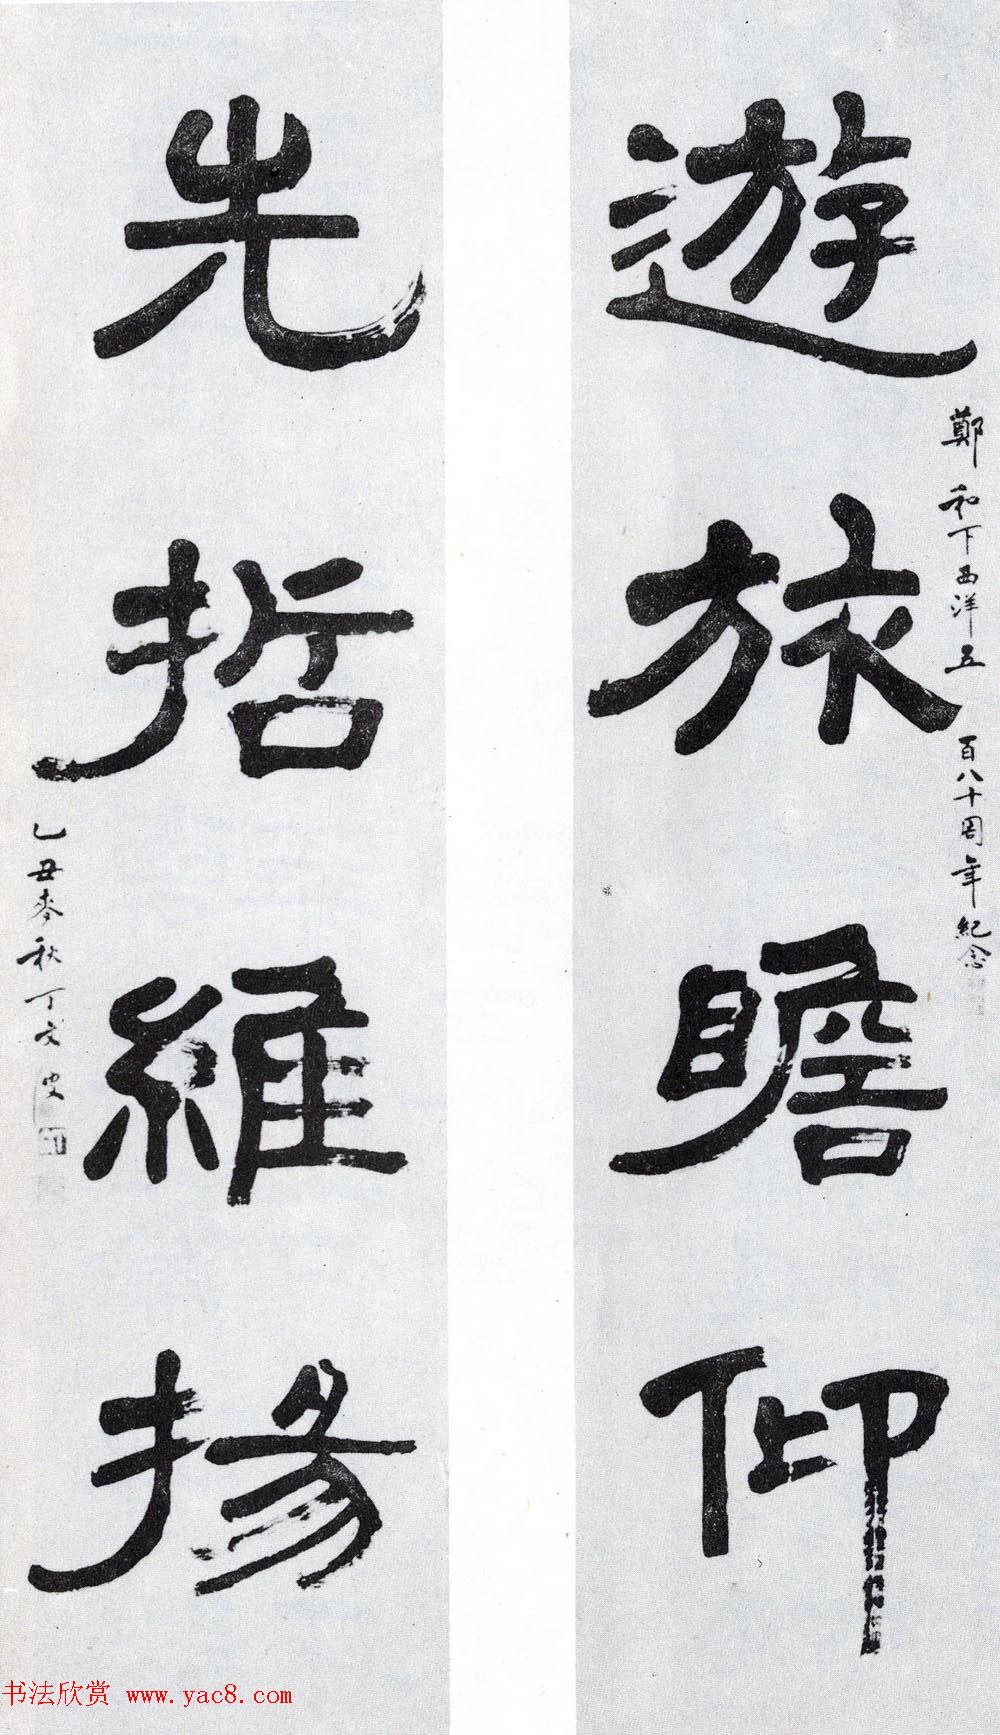 遊旅瞻仰
鄭和下西洋五百八十周年紀念
先哲維揚
乙丑麥秋丁文
书法欣赏 www.yac8.com